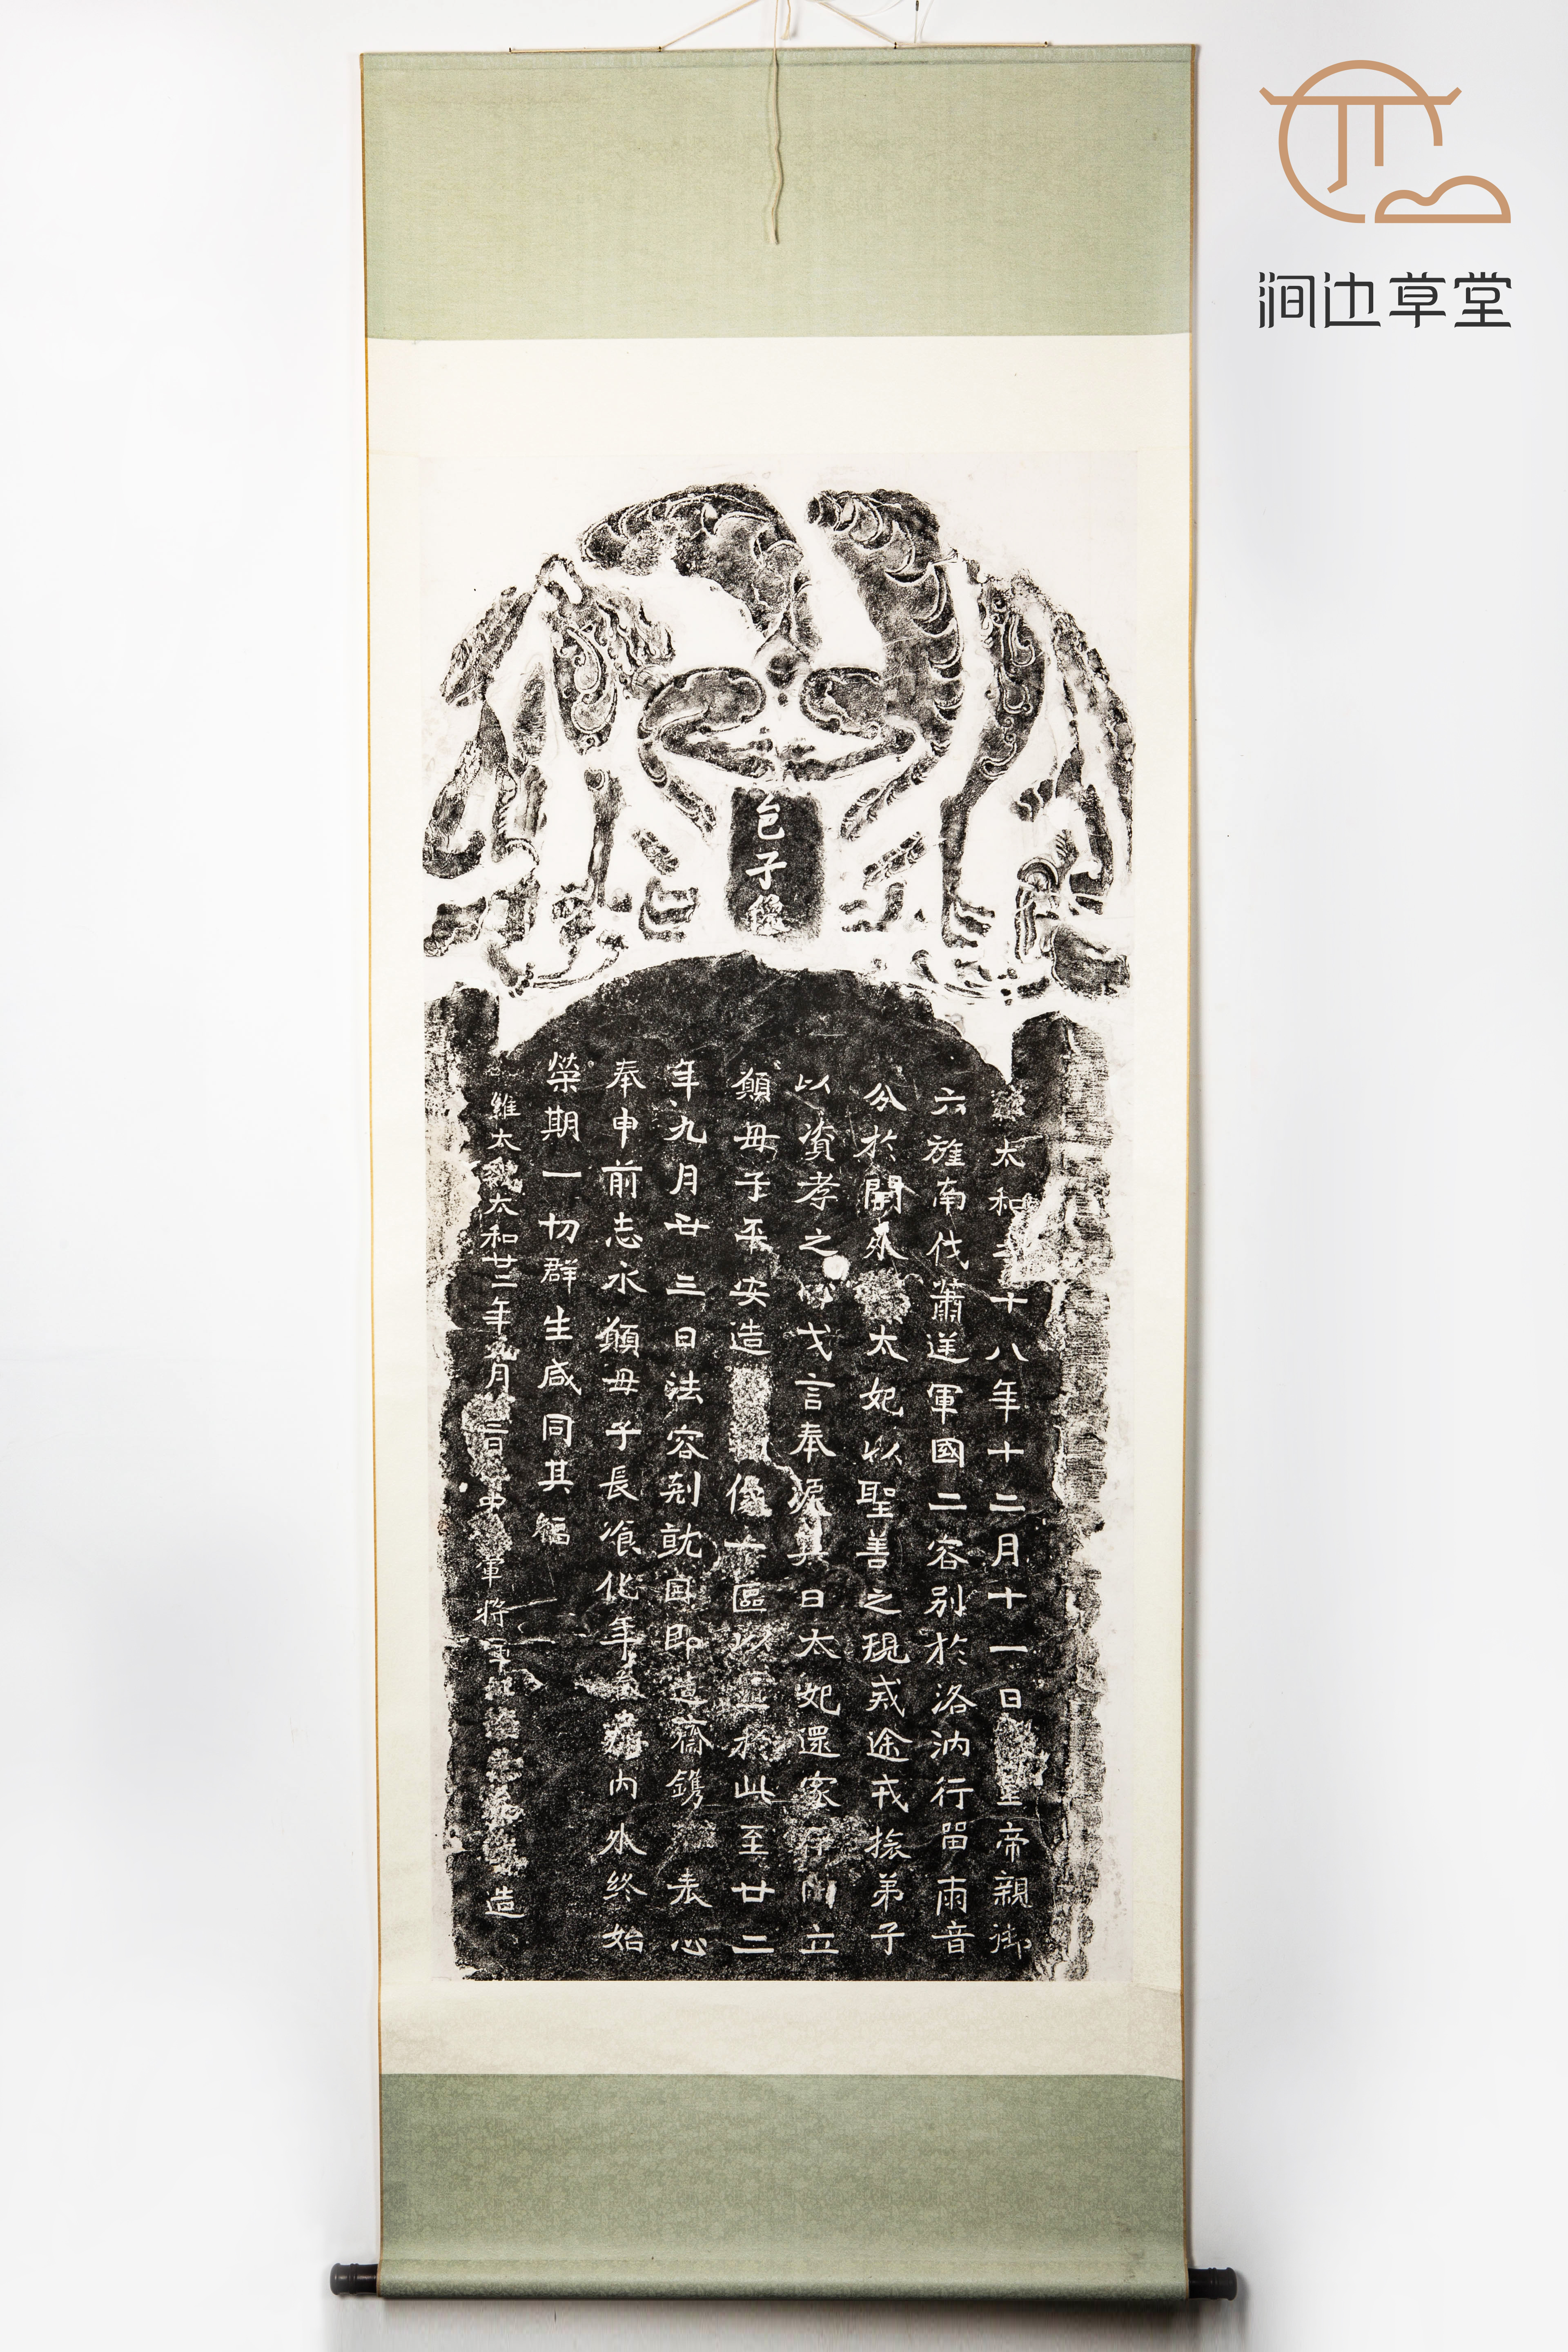 涧边草堂
邑子像
太和之十八年十二月十一日皇帝親御
六旌南伐蕭逆軍國二容別於洛汭行留兩音
分於闕外太妃以聖善之規戒途戎旅弟子
以資孝之心戈言奉淚其日太妃還家伊川立
願母子平安造像一區以置於此至廿二
年九月廿三日法容剋就因即造齋鐫表心
奉申前志永願母子長飡化年內外終始
榮期一切群生咸同其福
維太魏太和廿二年九月三日中軍將軍造